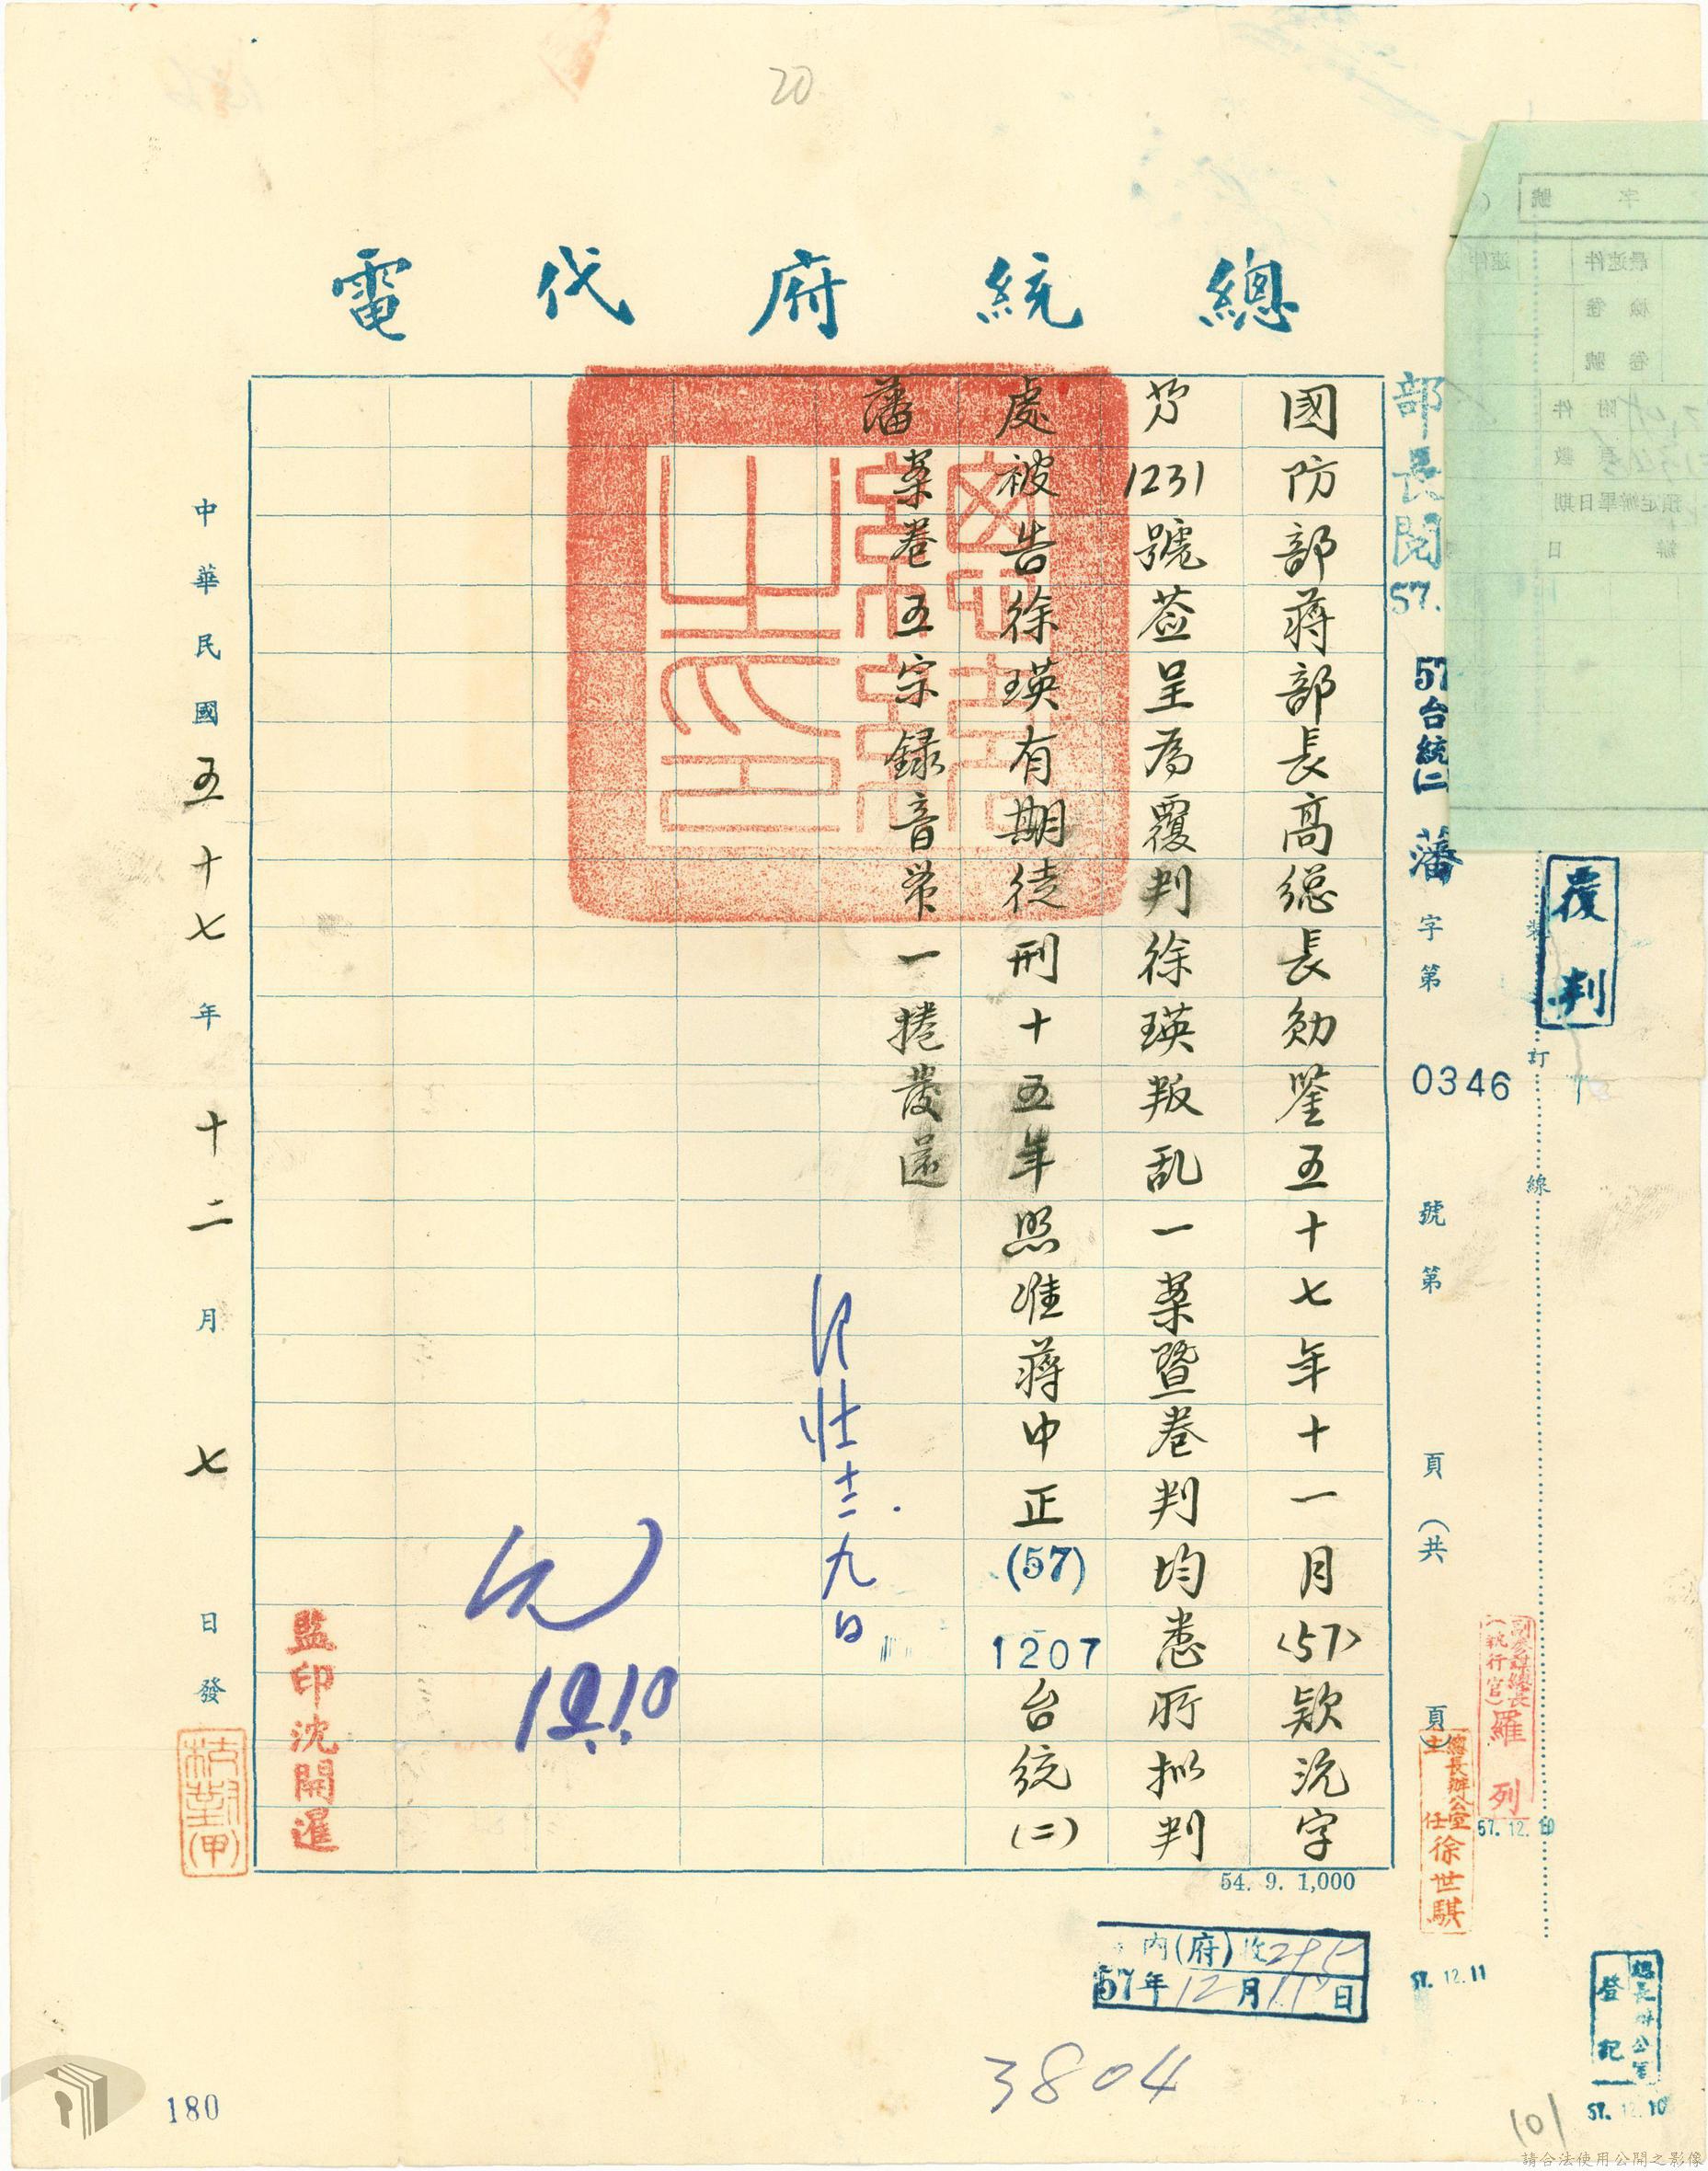 20
總統府代電
部長閱
57.
57台統㈡藩字第0346號第頁(共頁)
覆判
裝訂線
國防部蔣部長高總長勛鑒五十七年十一月<57>欵沇字
芳1231號簽呈為覆判徐瑛叛乱一案暨卷判均悉所拟判
處被告徐瑛有期徒刑十五年照准蔣中正(57)1207台統(二)
藩案卷五宗録音帶一捲發還
十二.九日
12.10
中華民國五十七年十二月七日發
監印沈開暹
副參謀總長(執行官)羅列
57.12.10
總長辦公室主任徐世騏
57.12.11
54. 9. 1,000
內(府)收295
57年12月11日
總長辦公室登記
57.12.10
3804
101
180
請合法使用公開之影像